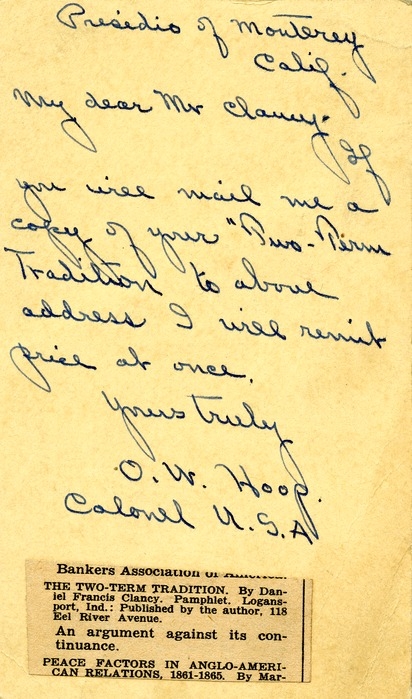 Presidio of Monterey
Calif.
My dear Mr Clancy:
If
you will mail me a
copy of your "Two-Term
Tradition to above
address I will remit
price at once.
Yours truly
O. W. Hoop.
Colonel U.S.A
Bankers Association of America.
THE TWO-TERM TRADITION. By Dan-
iel Francis Clancy. Pamphlet. Logans-
port, Ind.: Published by the author, 118
Eel River Avenue.
An argument against its con-
tinuance.
PEACE FACTORS IN ANGLO-AMERI-
CAN RELATIONS, 1861-1865. By Mar-